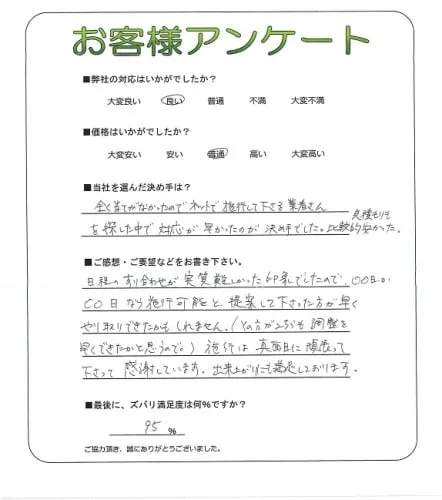 お客様アンケート
■弊社の対応はいかがでしたか?
大変良い 良い 普通 不満 大変不満
■価格はいかがでしたか?
大変安い 安い 普通 高い 大変高い
■当社を選んだ決め手は?
全く当てがなかったのでネットで施行して下さる業者さん
を探した中で対応が早かったのが決め手でした。比較的安かった。
見積もりも
■ご感想・ご要望などをお書き下さい。
日程のすり合わせが実質難しかった印象でしたので、〇〇日か
〇〇日なら施行可能と提案して下さった方が早く
やり取りできたかもしれません。(その方がこちらも調整を
早くできたかと思うので。) 施行は真面目に頑張って
下さって感謝しています。出来上がりにも満足しております。
■最後に、ズバリ満足度は何%ですか?
95 %
ご協力頂き、誠にありがとうございました。